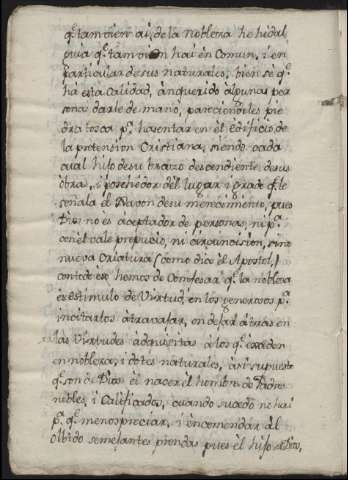 q.e tambien ai, de la nobleza he hidal
guia q.e tambien hai en comun, i en
particular de sus naturales, bien se q.e
ha esta Calidad, an querido algunas per
sonas darle de mano, pareciendoles pie
dra tosca p.a hasentar en el edificio de
la pretension Cristiana, siendo cada
cual hijo de su brazo descendiente de sus
obras, i posehedor del lugar i grado q.e le
señala el Razon de su merecimiento, pues
Dios no es aceptador de personas, ni p.a
con el vale prepucio, ni circuncision, sino
nueva Criatura (como dice el Apostol)
con todo eso, hemos de Confesar q.e la nobleza
es estimulo de Virtud, en los generosos p.a
incitarlos a trabajar, en dejar atras en
las Virtudes adquisitas a los q.e exceden
en nobleza, i dotes naturales, i asi supuesto
q.e son de Dios el nacer el hombre de Padres
nobles, i Calificados, cuando sucede no hai
p.a q.e menospreciar, i encomendar al
olbido semejantes prendas pues el hijo de Dios,